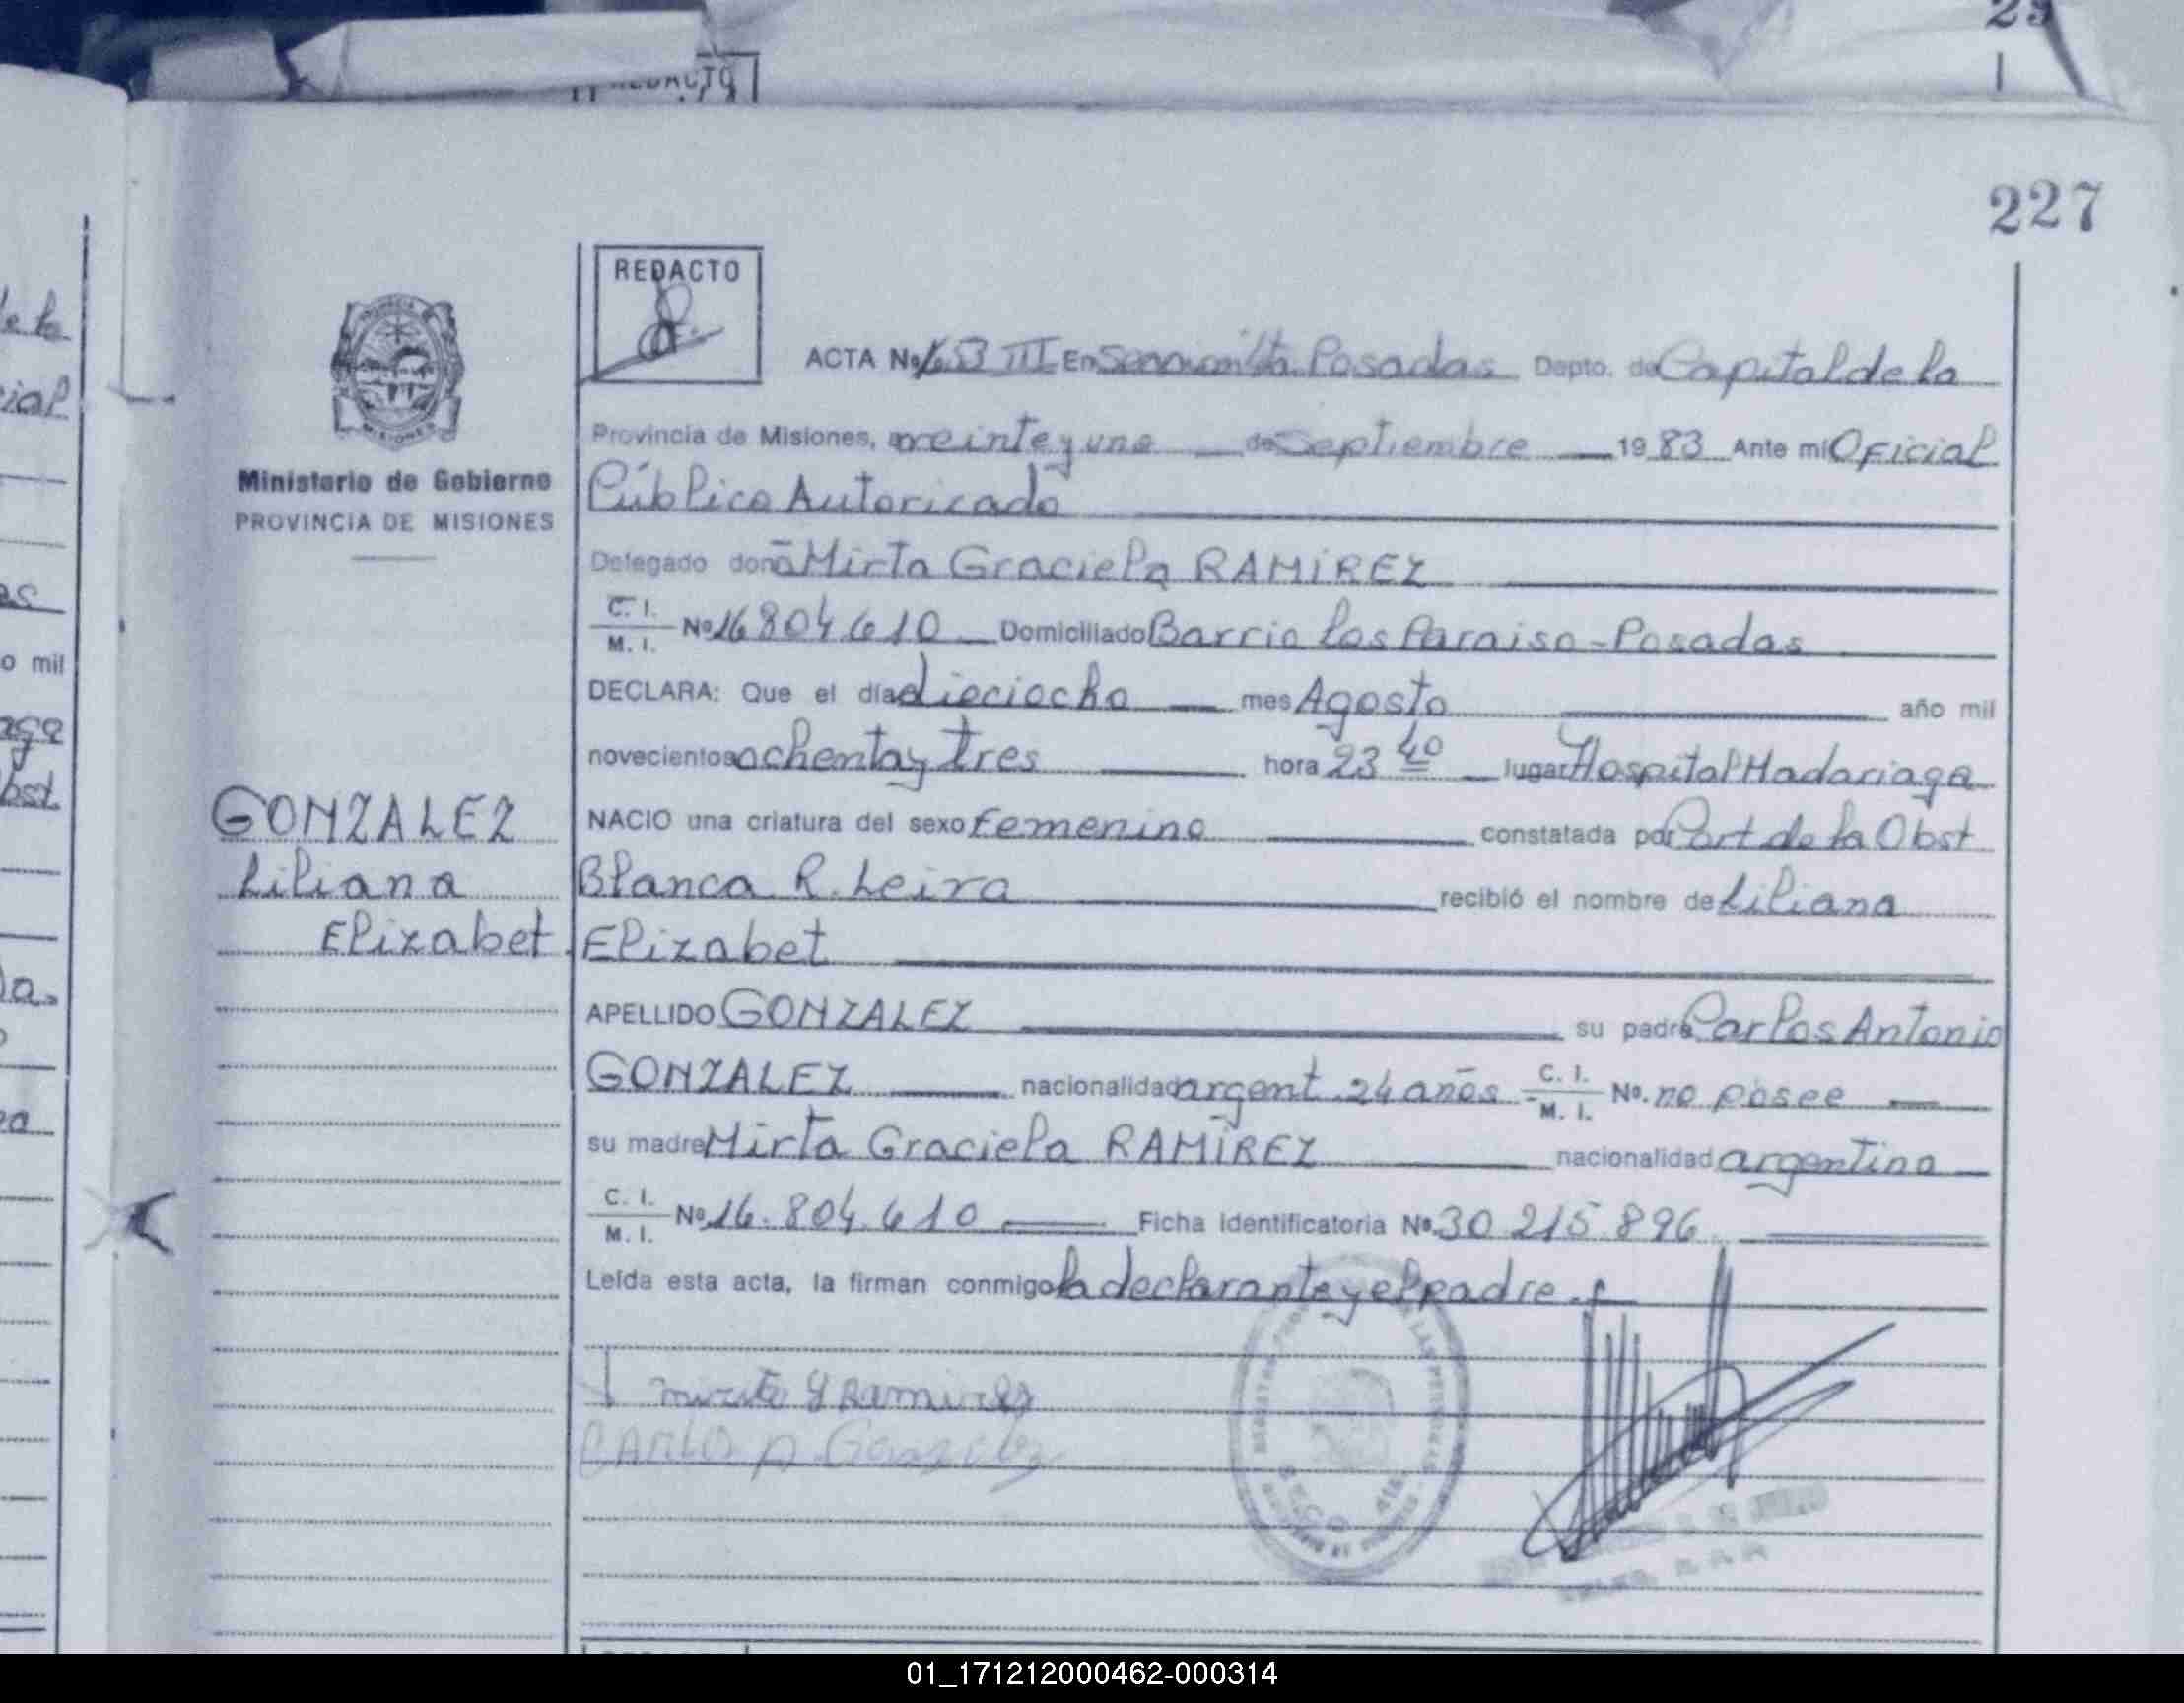 REDACTO
227
REDACTO
ACTA Nº 653 III En Posadas Depto. de Capital de la
Provincia de Misiones, a veinte y uno de Septiembre 1983 Ante mi Oficial
Público Autoricado
Ministerio de Gobierno
PROVINCIA DE MISIONES
Delegado doña Mirta Graciela RAMÍREZ
C. I.
M. I. Nº 16 804.610 Domiciliado Barrio Los Paraiso - Posadas
DECLARA: Que el día dieciocho mes Agosto año mil
novecientos ochenta y tres hora 23 40 lugar Hospital Madariaga
NACIO una criatura del sexo femenino constatada por Part de la Obst
Blanca R. Leira recibió el nombre de Liliana
Elizabet
GONZALEZ
Liliana
Elizabet
APELLIDO GONZALEZ su padre Carlos Antonio
GONZALEZ nacionalidad argent. 24 años C. I.
M. I. No. no posee
su madre Mirta Graciela RAMÍREZ nacionalidad argentina
C. I.
M. I. Nº 16.804.610 Ficha Identificatoria Nº 30.215.896
Leída esta acta, la firman conmigo la declarante y el padre.
Mirta G Ramirez
Carlos A. Gonzalez
01_171212000462-000314